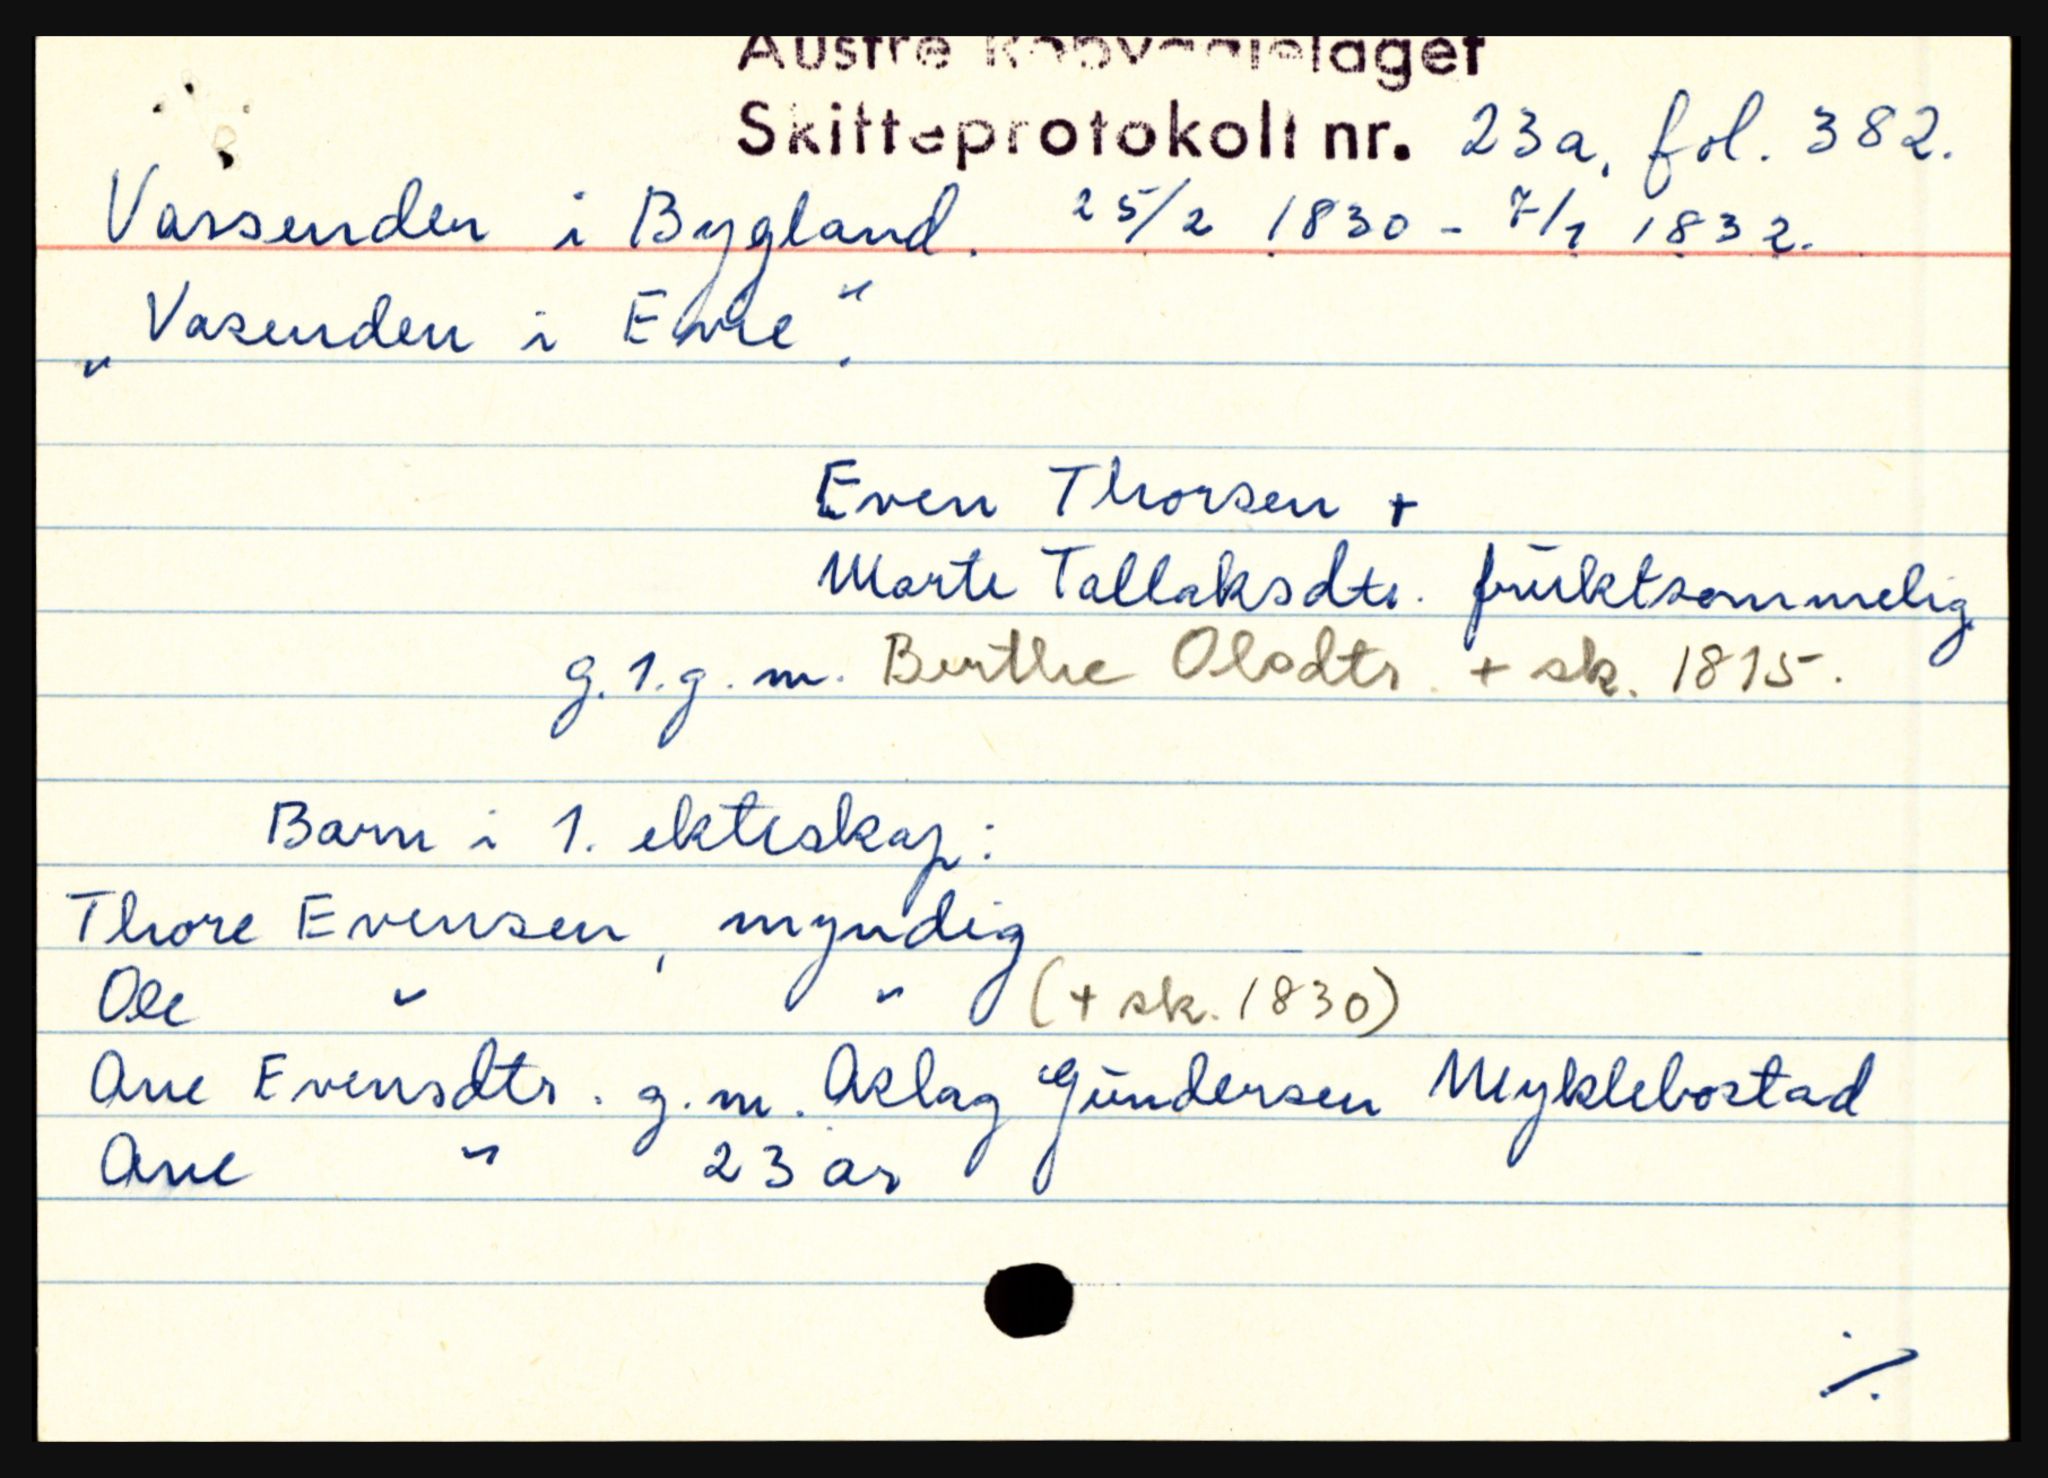 Austre Robyggjelaget
Skifteprotokoll nr. 23a, fol. 382.
Vassenden i Bygland. 25/2 1830 - 7/1 1832.
„Vasenden i Evje".
Even Thorsen +
Marte Tallaksdtr. fruktsommelig
g. 1. g. m. Berthe Olsdtr. + sk. 1815.
Barn i 1. ekteskap:
Thore Evensen, myndig
Ole " " (+ sk. 1830)
Ane Evensdtr. g. m. Aslag Gundersen Myklebostad
Ane " 23 år
./.